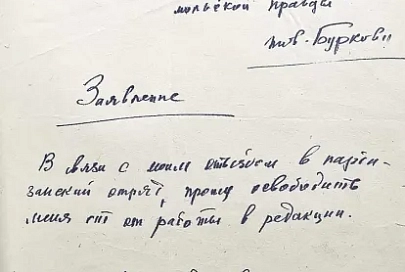 мольской Правды
тов. Буркову
Заявление
В связи с моим отъездом в парти-
занский отряд, прошу освободить
меня от от работы в редакции.